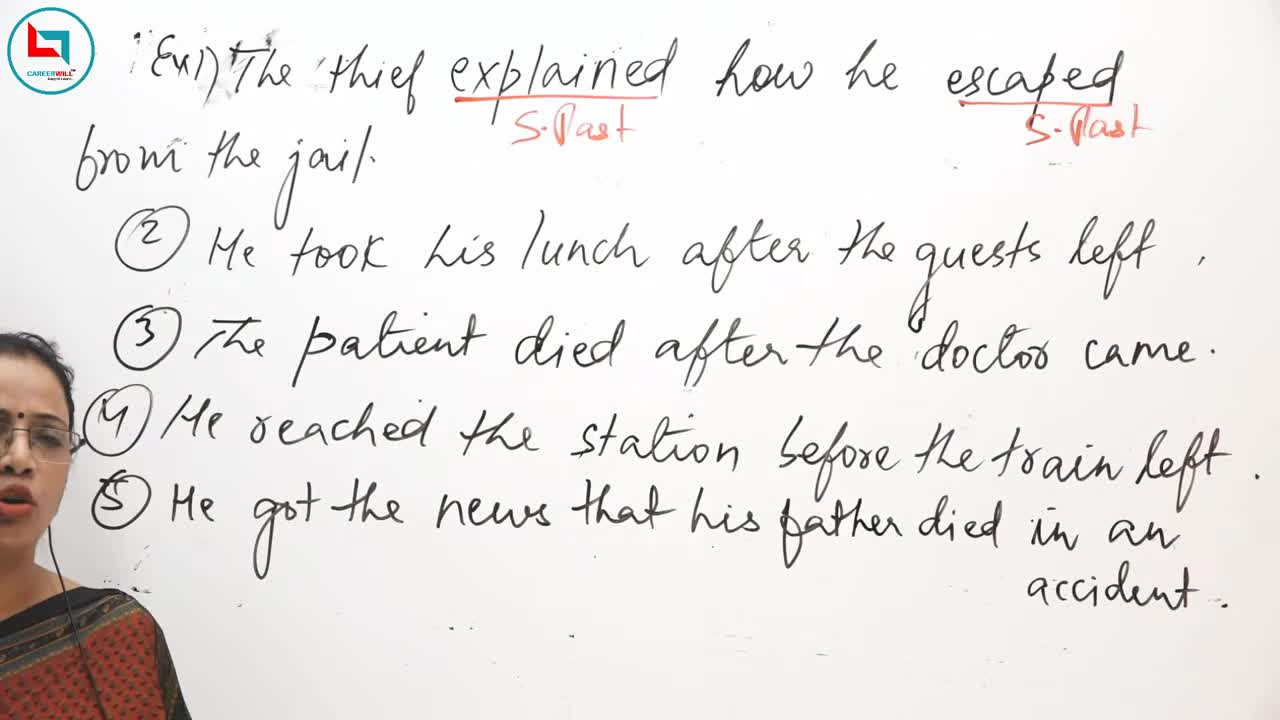 CAREERWILL™
Ex1) The thief explained how he escaped
S. Past S. Past
from the jail.
② He took his lunch after the guests left.
③ The patient died after the doctor came.
④ He reached the station before the train left.
⑤ He got the news that his father died in an
accident.